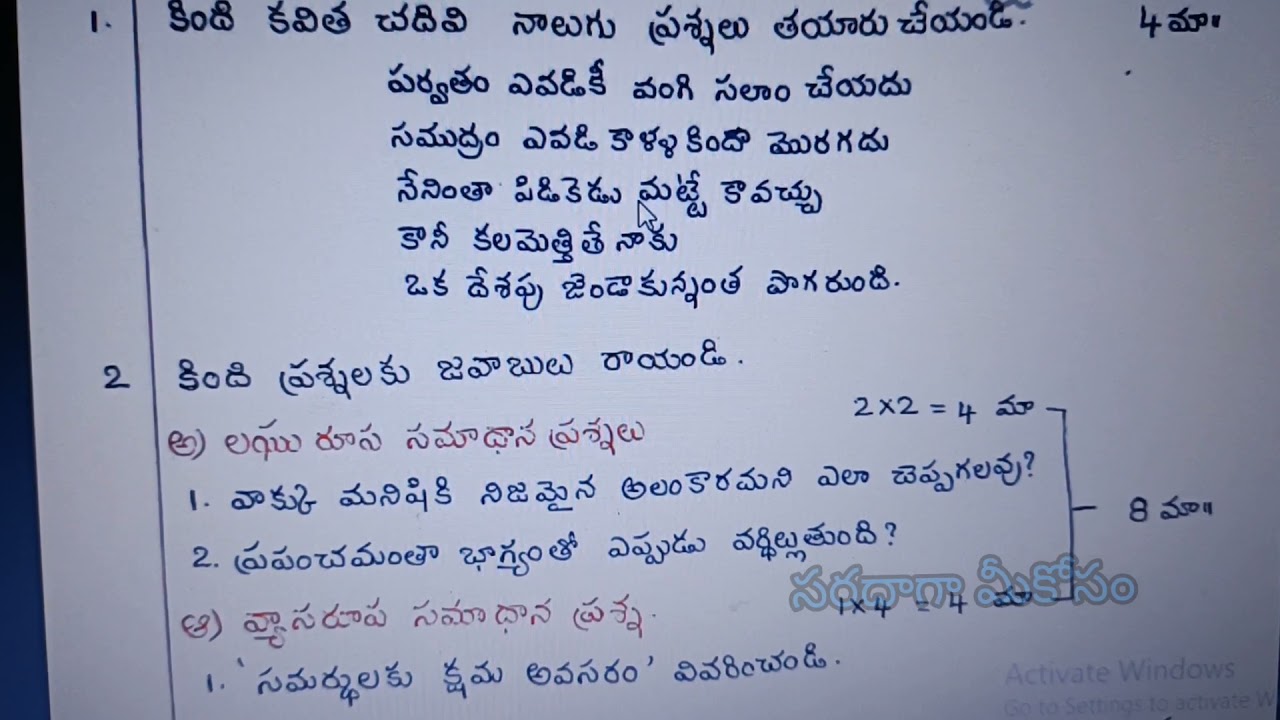 1. కింది కవిత చదివి నాలుగు ప్రశ్నలు తయారు చేయండి. 4 మా॥
పర్వతం ఎవడికీ వంగి సలాం చేయదు
సముద్రం ఎవడి కాళ్ళ కిందా మొరగదు
నేనింతా పిడికెడు మట్టే కావచ్చు
కానీ కలమెత్తితే నాకు
ఒక దేశపు జెండాకున్నంత పొగరుంది.
2 కింది ప్రశ్నలకు జవాబులు రాయండి.
2×2 = 4 మా
అ) లఘు రూప సమాధాన ప్రశ్నలు
1. వాక్కు మనిషికి నిజమైన అలంకారమని ఎలా చెప్పగలవు?
8 మా॥
2. ప్రపంచమంతా భాగ్యంతో ఎప్పుడు వర్ధిల్లుతుంది?
సగదాగా మీకోసం
1×4 = 4 మా
ఆ) వ్యాసరూప సమాధాన ప్రశ్న.
1. 'సమర్థులకు క్షమ అవసరం' వివరించండి.
Activate Windows
Go to Settings to activate W